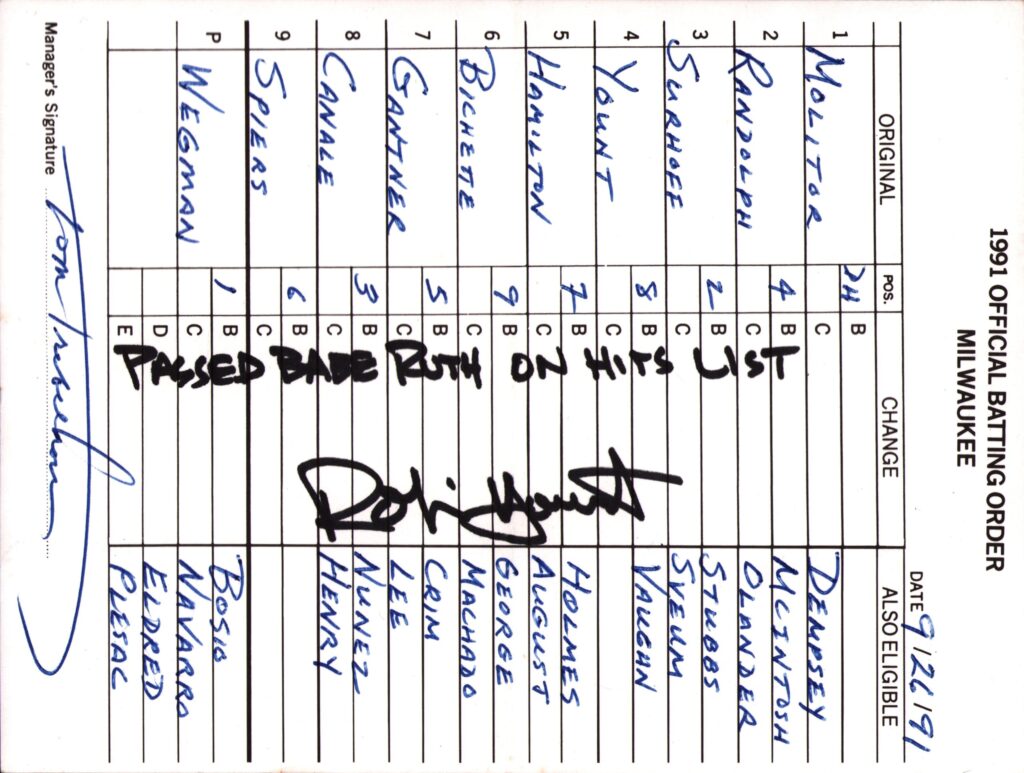 1991 OFFICIAL BATTING ORDER
MILWAUKEE
DATE 9/26/91
ORIGINAL POS. CHANGE ALSO ELIGIBLE
1 MOLITOR DH B
C DEMPSEY
2 RANDOLPH 4 B MCINTOSH
C OLANDER
3 SURHOFF 2 B STUBBS
C SVEUM
4 YOUNT 8 B VAUGHN
C
5 HAMILTON 7 B HOLMES
C AUGUST
6 BICHETTE 9 B GEORGE
C MACHADO
7 GANTNER 5 B CRIM
C LEE
8 CANALE 3 B NUNEZ
C HENRY
9 SPIERS 6 B
C
P WEGMAN 1 B BOSIO
C NAVARRO
D ELDRED
E PLESAC
PASSED BABE RUTH ON HITS LIST
Robin Yount
Manager's Signature Tom Trebelhorn